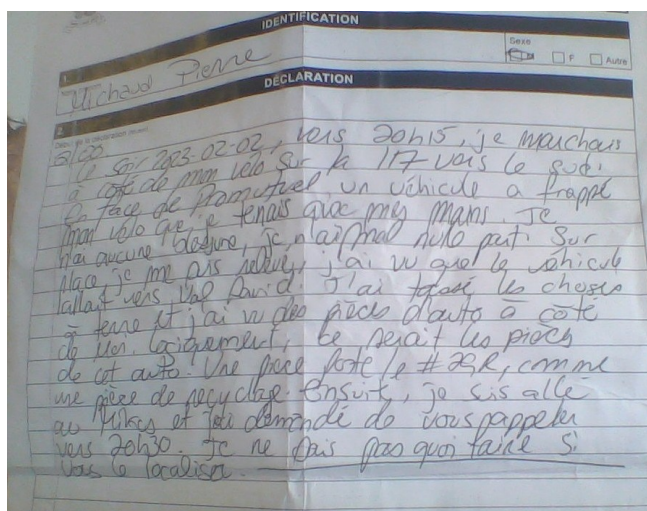 IDENTIFICATION
Sexe
F
Autre
1.
Michaud Pierre
DÉCLARATION
2.
Ce soir 2023-02-02, vers 20h15, je marchais
à coté de mon vélo sur la 117 vers le sud.
En face de Promutuel, un véhicule a frappé
mon vélo que je tenais avec mes mains. Je
n'ai aucune blessure, je n'ai mal nulle part. Sur
place, je me suis relevé, j'ai vu que le véhicule
allait vers Val David. J'ai tassé les choses
à terre et j'ai vu des pièces d'auto à côté
de moi. Logiquement, ce serait les pièces
de cet auto. Une pièce porte le #29R, comme
une pièce de recyclage. Ensuite, je sis allé
au Mikes et j'ai demandé de vous rappeler
vers 20h30. Je ne sais pas quoi faire si
vous le localiser.